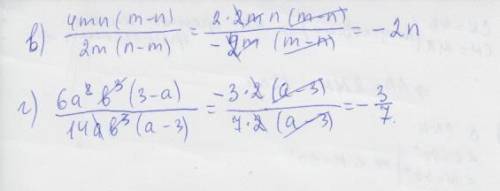 в) 4mn(m-n) / 2m(n-m) = 2·2mn(m-n) / -2m(m-n) = -2n
г) 6a²b³(3-a) / 14ab³(a-3) = -3·2(a-3) / 7·2(a-3) = -3/7.